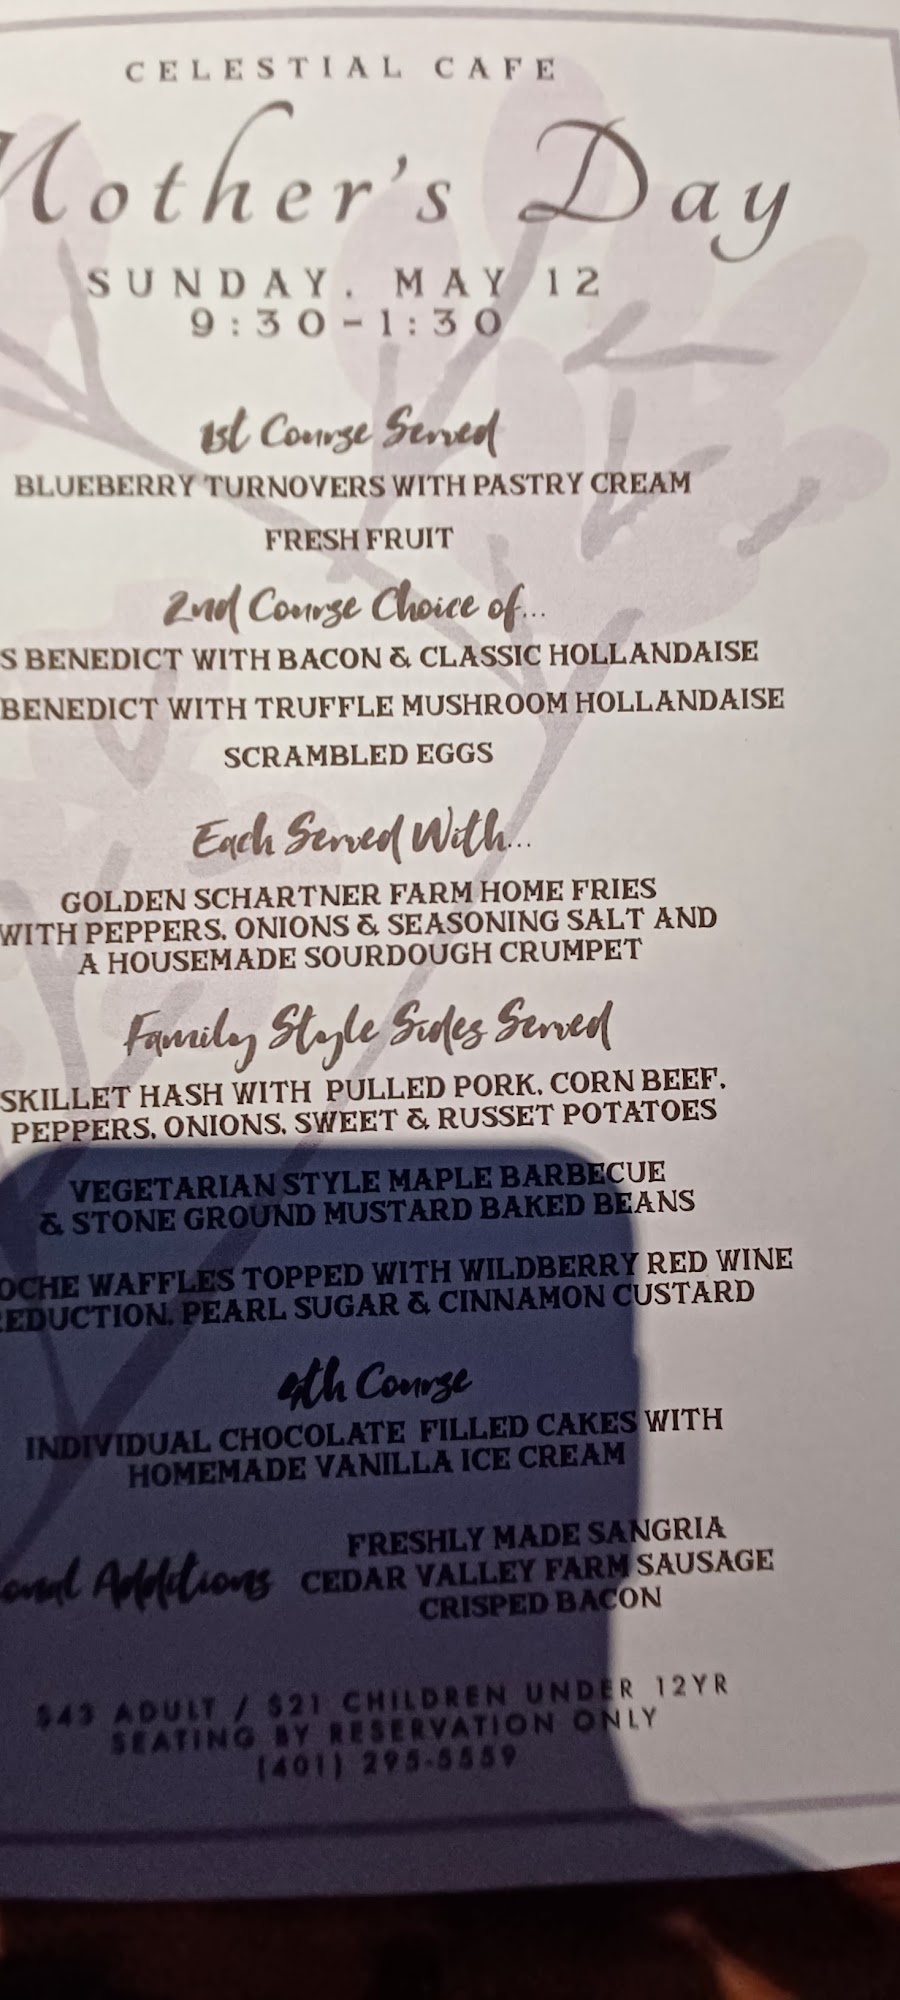 CELESTIAL CAFE
Mother's Day
SUNDAY, MAY 12
9:30-1:30
1st Course Served
BLUEBERRY TURNOVERS WITH PASTRY CREAM
FRESH FRUIT
2nd Course Choice of...
S BENEDICT WITH BACON & CLASSIC HOLLANDAISE
BENEDICT WITH TRUFFLE MUSHROOM HOLLANDAISE
SCRAMBLED EGGS
Each Served With...
GOLDEN SCHARTNER FARM HOME FRIES
WITH PEPPERS, ONIONS & SEASONING SALT AND
A HOUSEMADE SOURDOUGH CRUMPET
Family Style Sides Served
SKILLET HASH WITH PULLED PORK, CORN BEEF,
PEPPERS, ONIONS, SWEET & RUSSET POTATOES
VEGETARIAN STYLE MAPLE BARBECUE
& STONE GROUND MUSTARD BAKED BEANS
OCHE WAFFLES TOPPED WITH WILDBERRY RED WINE
REDUCTION, PEARL SUGAR & CINNAMON CUSTARD
4th Course
INDIVIDUAL CHOCOLATE FILLED CAKES WITH
HOMEMADE VANILLA ICE CREAM
onal Additions
FRESHLY MADE SANGRIA
CEDAR VALLEY FARM SAUSAGE
CRISPED BACON
$43 ADULT / $21 CHILDREN UNDER 12YR
SEATING BY RESERVATION ONLY
(401) 295-5559